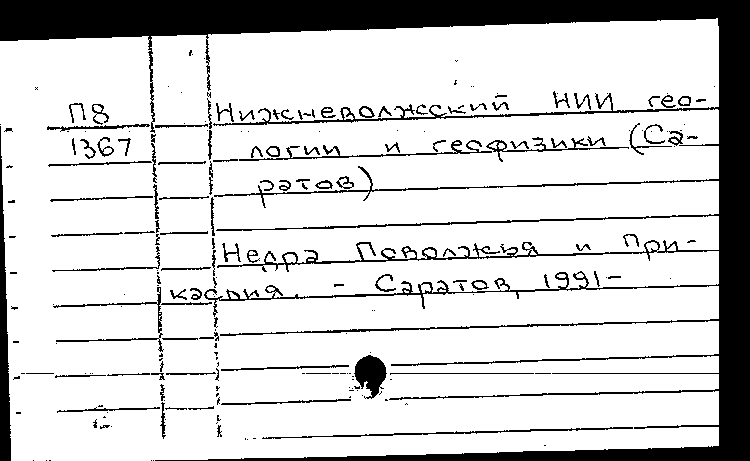 П8
1367
Нижневолжский НИИ гео-
логии и геофизики (Са-
ратов)
Недра Поволжья и При-
каспия. - Саратов, 1991-